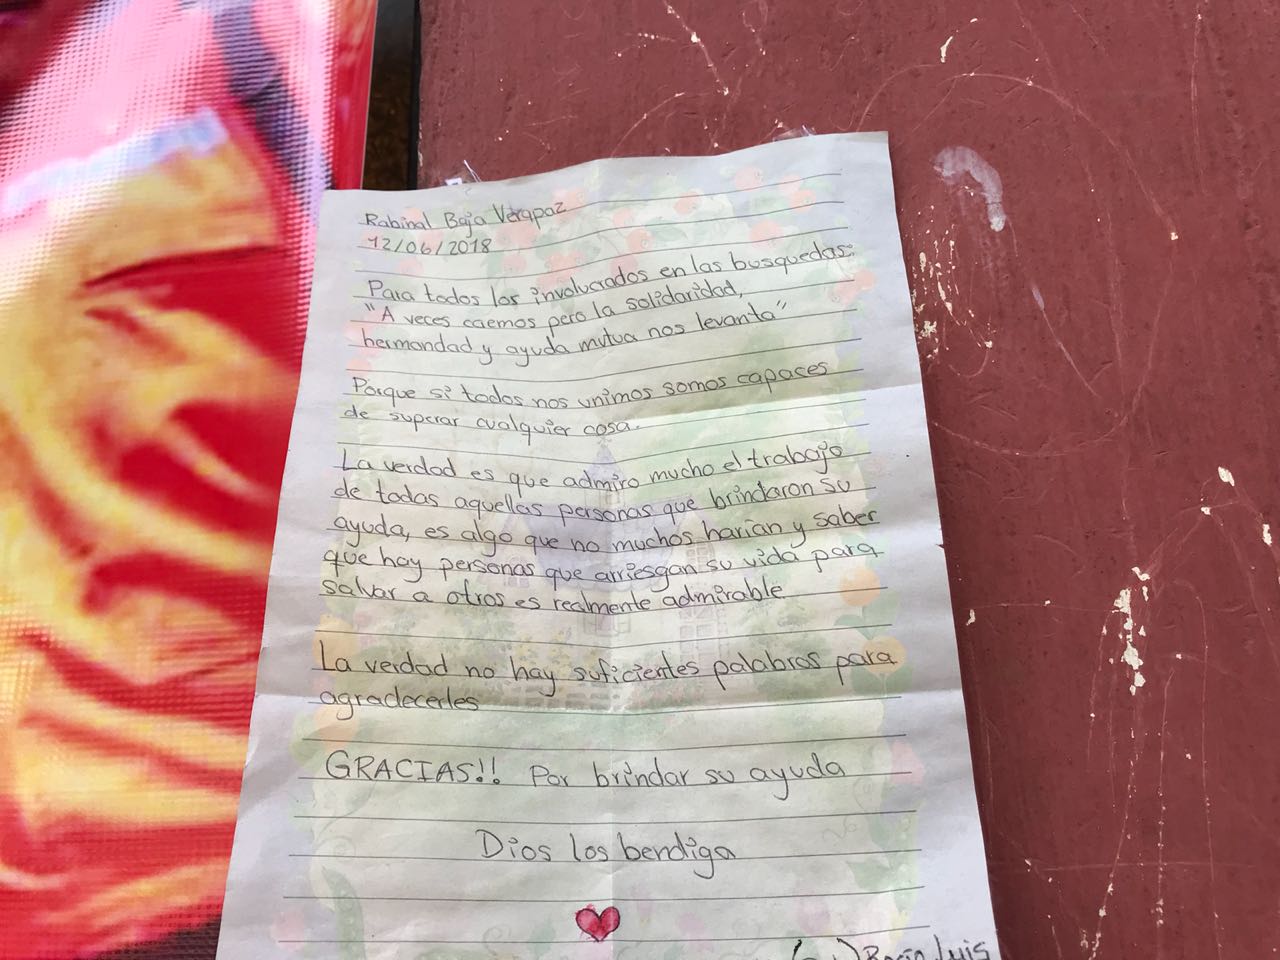 Rabinal Baja Verapaz
12/06/2018
Para todos los involucrados en las busquedas:
"A veces caemos pero la solidaridad,
hermandad y ayuda mutua nos levanta"
Porque si todos nos unimos somos capaces
de superar cualquier cosa.
La verdad es que admiro mucho el trabajo
de todas aquellas personas que brindaron su
ayuda, es algo que no muchos harían y saber
que hay personas que arriesgan su vida para
salvar a otros es realmente admirable
La verdad no hay suficientes palabras para
agradecerles
GRACIAS!! Por brindar su ayuda
Dios los bendiga
Luis